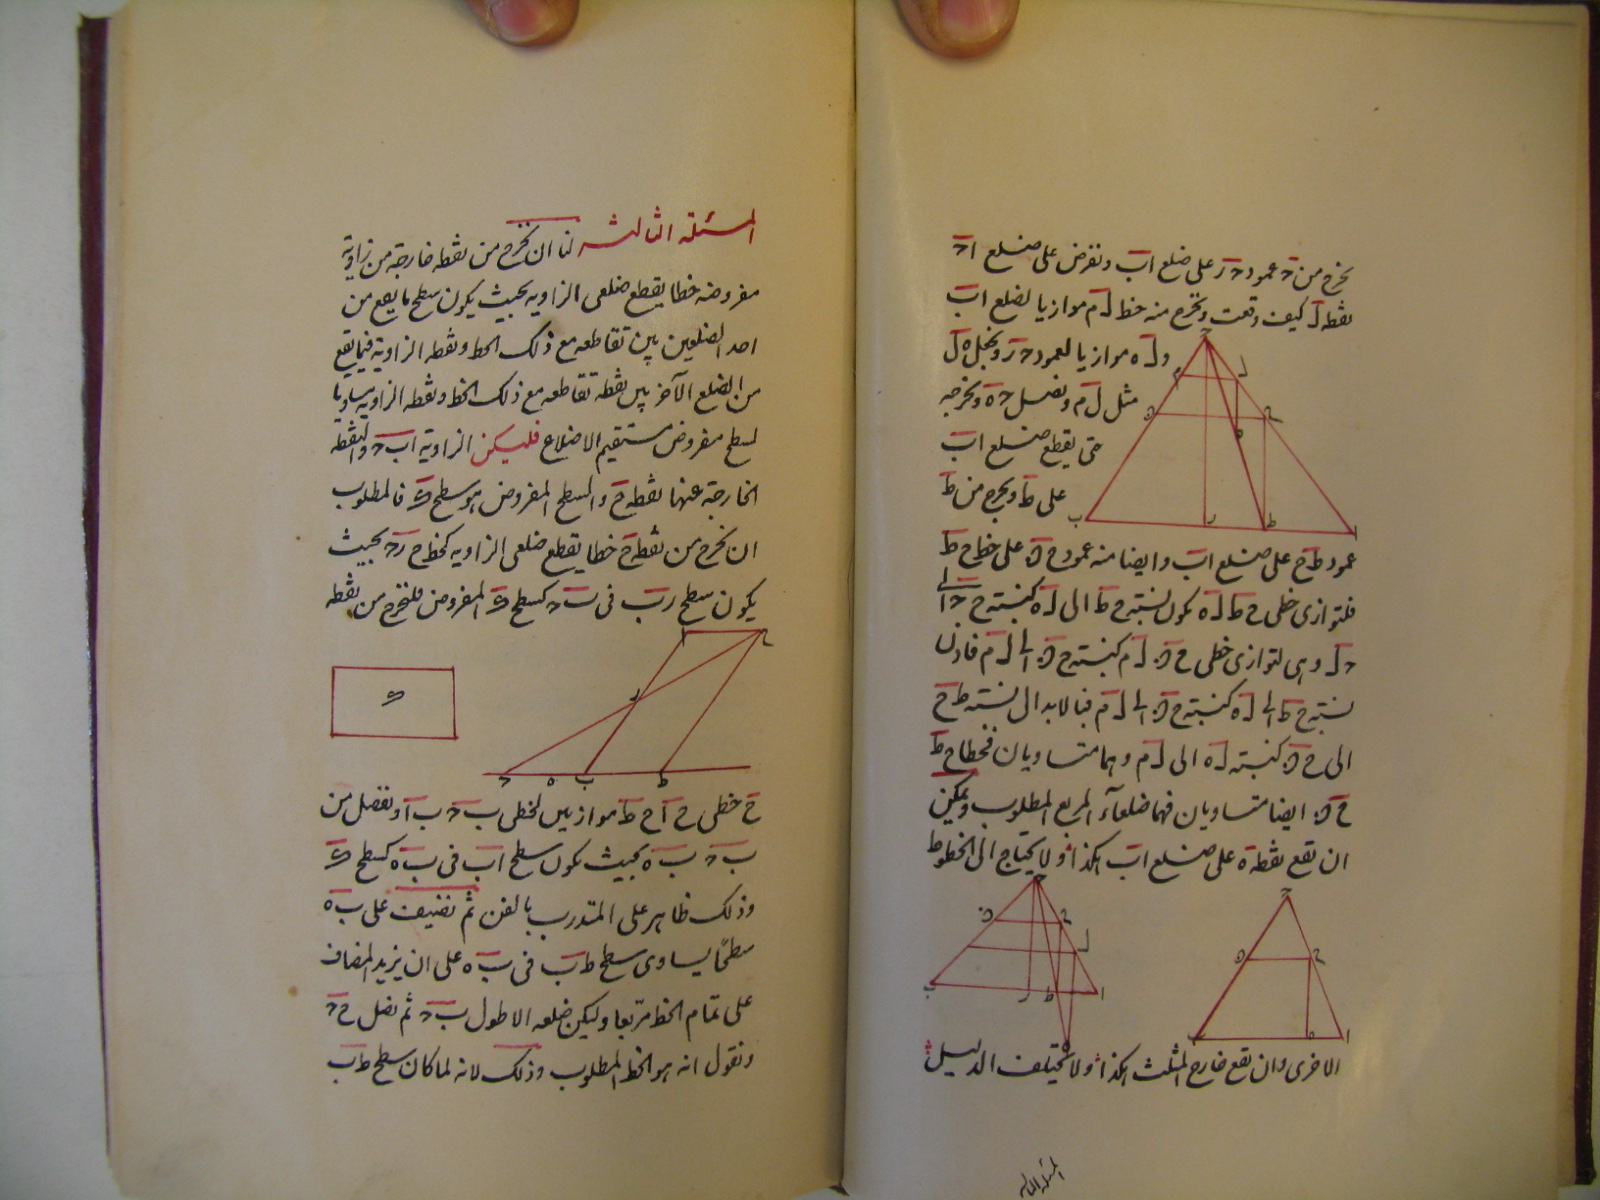 نخرج من حـ عمود حـ ر على ضلع اب ونفرض على ضلع احـ
نقطه ل كيف وقعت ونخرج منه خط ل م موازيا لضلع اب
ول ه موازيا لعمود حـ ر ونجعل ه ل
مثل ل م ونصل حـ ه ونخرجه
حتى يقطع ضلع اب
على ط ونخرج من ط
عمود ط ح على ضلع اب وايضا منه عمود ح ى على خط ح ط
فلتوازى خطى ح ط ل ه تكون نسبته ح ط الى ل ه كنسبته ح حـ الى
حـ ل وهى لتوازى خطى ح ى ل م كنسبته ح ى الى ل م فاذن
نسبته ح ط الى ل ه كنسبته ح ى الى ل م فبالابدال نسبته ط ح
الى ح ى كنسبته ل ه الى ل م وهما متساويان فخطا ح ط
ح ى ايضا متساويان فهما ضلعا المربع المطلوب ويمكن
ان تقع نقطة ه على ضلع اب هكذا ولا يحتاج الى الخطوط
الاخرى وان تقع خارج المثلث هكذا ولا يختلف الدليل
المسئلة الثالثه لنا ان نخرج من نقطه خارجة من زاوية
مفروضه خطا يقطع ضلعى الزاويه بحيث يكون سطح ما يقع من
احد الضلعين بين تقاطعه مع ذلك الخط ونقطه الزاوية فيما يقع
من الضلع الآخر بين نقطة تقاطعه مع ذلك الخط ونقطه الزاويه مساويا
لسطح مفروض مستقيم الاضلاع فليكن الزاوية اب حـ والنقطه
الخارجة عنها نقطه ح والسطح المفروض هو سطح ى فالمطلوب
ان نخرج من نقطه ح خطا يقطع ضلعى الزاويه كخط ح ر حـ بحيث
يكون سطح ر ب فى ب حـ كسطح ى المفروض فلنخرج من نقطه
ح خطى ح ا ح ط موازيين لخطى ب حـ ب ا ونفصل من
ب حـ ب ه بحيث يكون سطح اب فى ب ه كسطح ى
وذلك ظاهر على المتدرب بالفن ثم نضيف على ب ه
سطحا يساوى سطح ط ب فى ب ه على ان يزيد المضاف
على تمام الخط مربعا وليكن ضلعه الاطول ب حـ ثم نصل ح حـ
ونقول انه هو الخط المطلوب وذلك لانه لما كان سطح ط ب